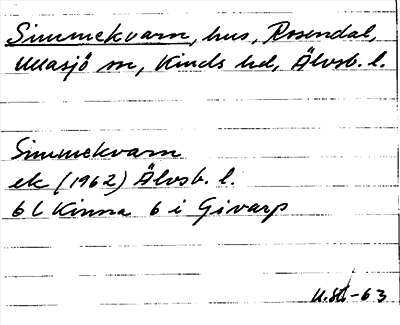 Simmekvarn, hus, Rosendal,
Ullasjö sn, Kinds hd, Älvsb. l.
Simmekvarn
ek (1962) Älvsb. l.
6 C Kinna 6 i Givarp
-63